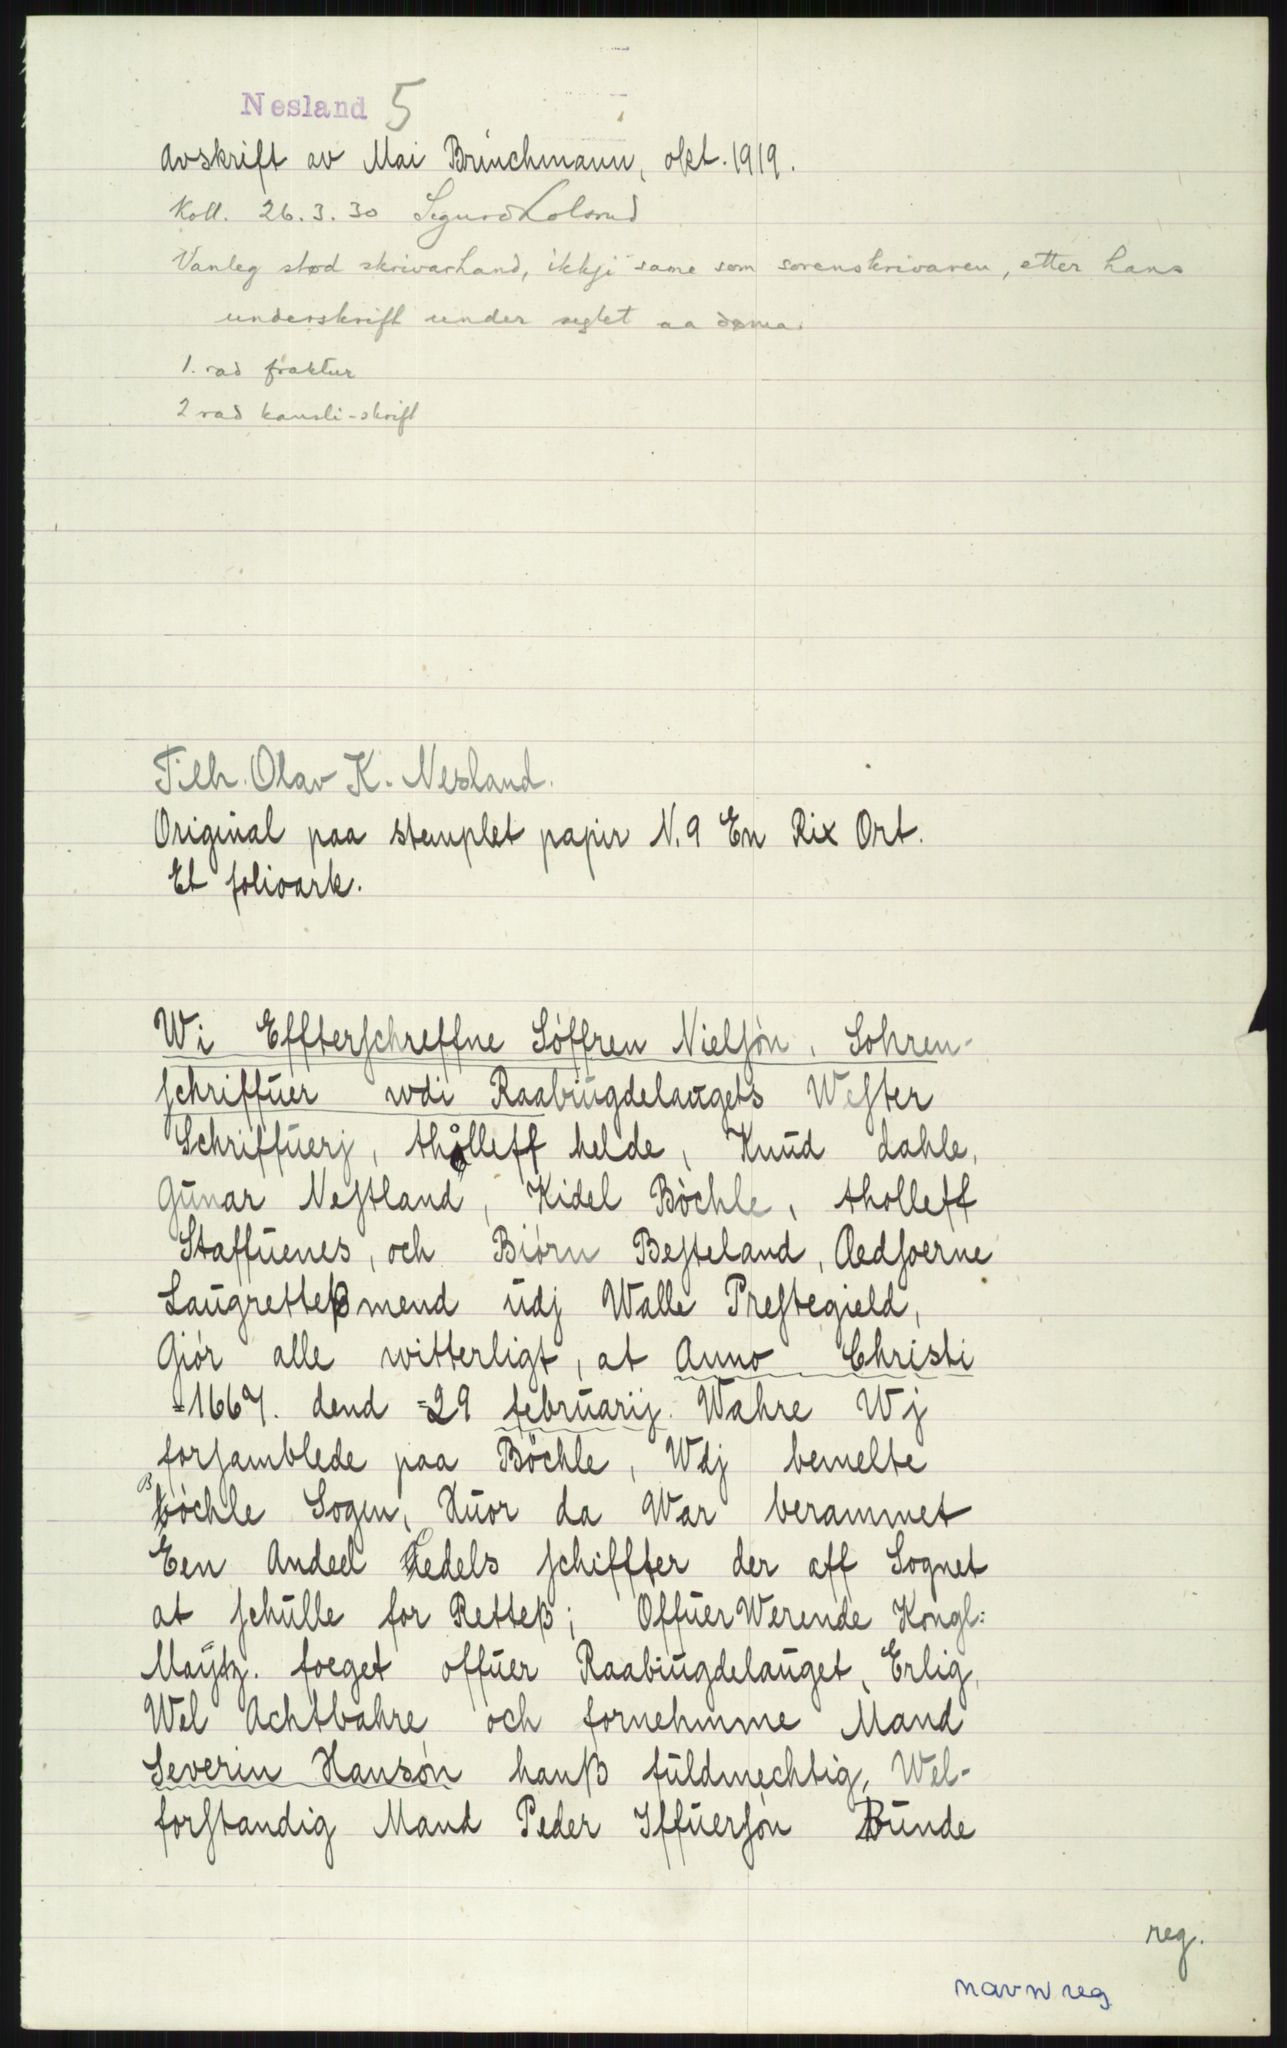 Nesland 5
Avskrift av Mai Brunchmann, okt. 1919.
Koll. 26.3.30 Sigurd Kolsrud
Vanleg stød skrivarhand, ikkji same som sorenskrivaren, etter hans
underskrift under seglet aa døma.
1. rad fraktur
2 rad kansli-skrift
Tilh. Olav K. Nesland.
Original paa stemplet papir N. 9 En Rix Ort.
Et folioark.
Wi Effterschreffne Söffren Nielsön, Sohren-
schriffuer wdi Raabiugdelaugets Wester
Schriffuerj, thålleff helde, Knud dahle,
Gunar Nestland, Kidel Böchle, tholleff
Staffuenes, och Biörn Besteland, Aedsoerne
Laugretteßmend udj Walle Prestegield,
Giör alle witterligt, at Anno Christi
=1667. dend =29 februarij. Wahre Wj
forsamblede paa Böchle, Wdj bemelte
Böchle Sogen, Huor da War berammet
Een Andeel Ledels schiffter der aff Sognet
at schulle for Retteß; OffuerWerende Kongl:
Maÿtz. foeget offuer Raabiugdelauget, Erlig,
Wel Achtbahre och fornehmme Mand
Severin Hansön hanß fuldmechtig, Wel-
forstandig Mand Peder Iffuersön Bunde
reg.
navnreg